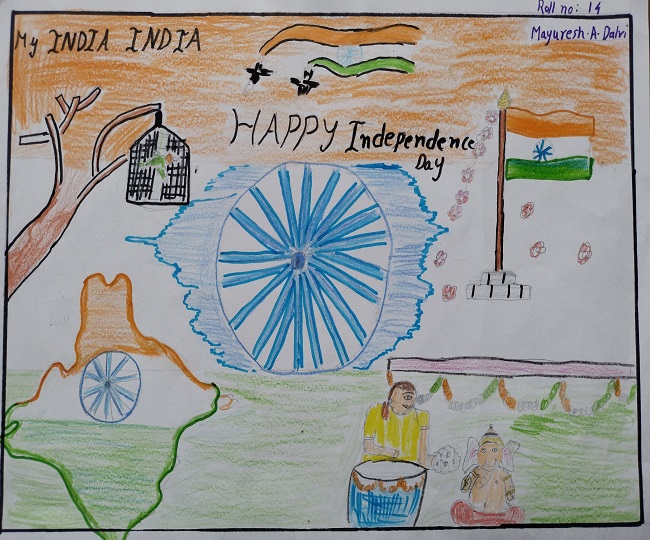 Roll no: 14
Mayuresh.A.Dalvi
My INDIA INDIA
HAPPY Independence
Day